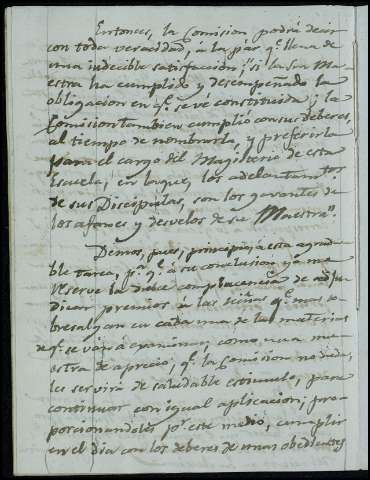 Entonces, la Comision podrá decir
con toda veracidad, á la par q.e llena de
una indecible satisfaccion; "si la Sra. Ma-
estra ha cumplido y desempeñado la
obligacion en q.e se vé constituida; la
Comision tambien cumplió con sus deberes,
al tiempo de nombrarla, y preferirla
para el cargo del Magisterio de esta
Escuela, en la que, los adelantamtos
de sus Discipulas, son los garantes de
los afanes y desvelos de su Maestra".
Demos, pues, principio á esta agrada-
ble tarea, p.a q.e á su conclusion ya me
reserve la dulce complacencia de adju-
dicar premios á las Niñas q.e mas so-
bresalgan en cada una de las materias
de q.e se ván á examinar; como una mu-
estra de aprecio, q.e la Comision no duda,
les servirá de saludable estimulo, para
continuar con igual aplicacion; pro-
porcionandoles p.r este medio, cumplir
en el dia con los deberes de unas obedientes